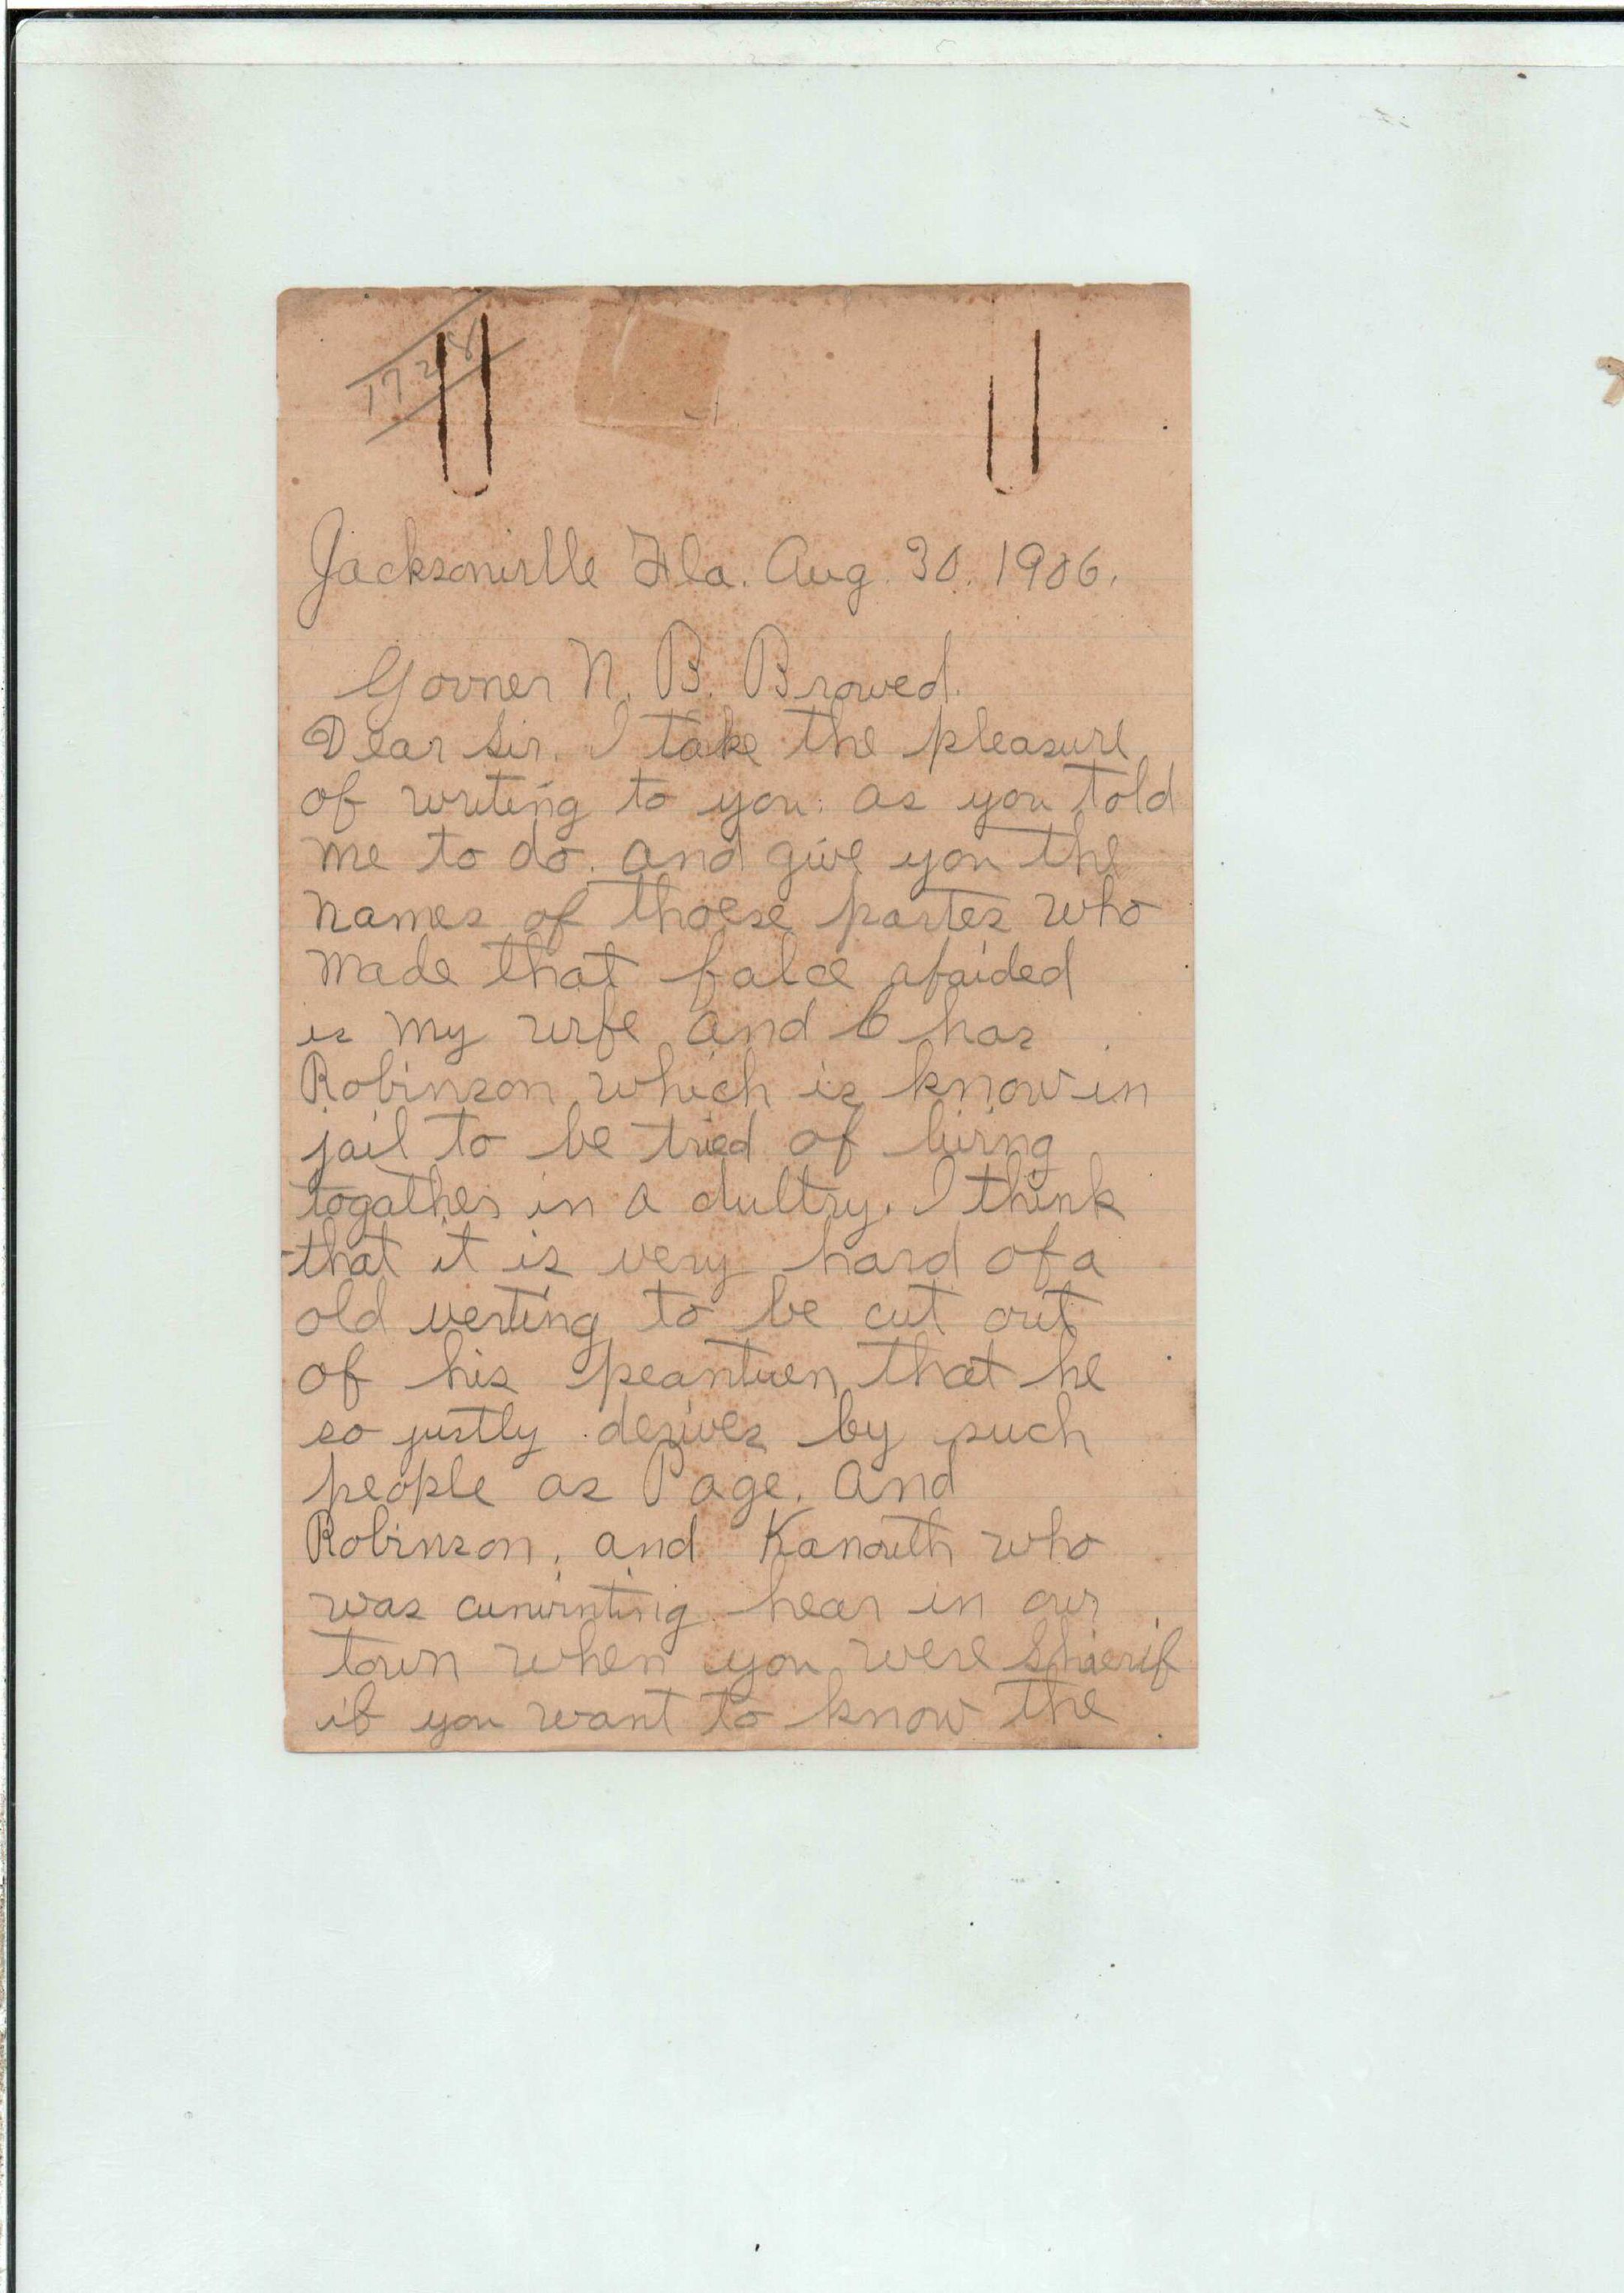 1728
Jacksonville Fla. Aug. 30. 1906.
Govner N. B. Browed.
Dear Sir. I take the pleasure
of writing to you. as you told
me to do. and give you the
names of thoese partes who
made that falce afaided
is my wife and Chas
Robinson which is know in
jail to be tried of living
togather in a dultry. I think
that it is very hard of a
old verting to be cut out
of his peantuen that he
so justly derives by such
people as Page. and
Robinson. and Kanouth who
was hear in our
town when you were Shierif
if you want to know the